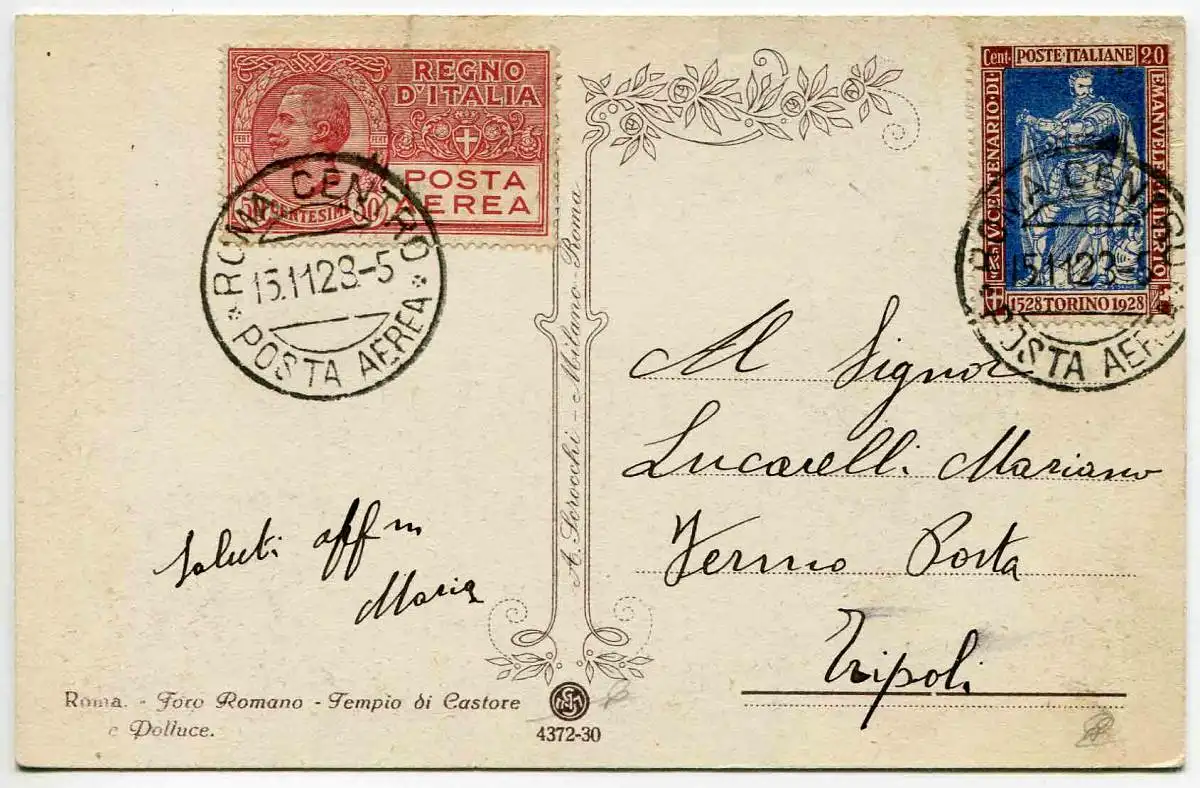 REGNO
D'ITALIA
POSTA
AEREA
CENTESIMI 80
ROMA CENTRO
15.11.28-5
POSTA AEREA
Cent. POSTE·ITALIANE 20
IV·CENTENARIO·DI·
EMANVELE·FILIBERTO
1528 TORINO 1928
ROMA CENTRO
15.11.28-5
POSTA AEREA
A. Scrocchi - Milano-Roma
Al Signor
Lucarelli Mariano
Fermo Posta
Tripoli
Saluti affmi
Maria
Roma. - Foro Romano - Tempio di Castore
e Polluce.
4372-30